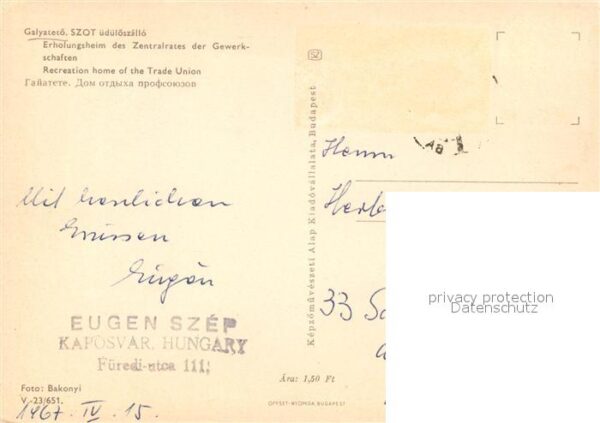 Galyatető. SZOT üdülőszálló
Erholungsheim des Zentralrates der Gewerk-
schaften
Recreation home of the Trade Union
Гайатете. Дом отдыха профсоюзов
Mit herzlichen
Grüssen
Eugén
EUGEN SZÉP
KAPOSVÁR, HUNGARY
Füredi-utca 111.
Foto: Bakonyi
V.-23/651.
1967. IV. 15.
Képzőművészeti Alap Kiadóvállalata, Budapest
Herrn
Herb
33
privacy protection
Datenschutz
Ára: 1,50 Ft
OFFSET-NYOMDA BUDAPEST